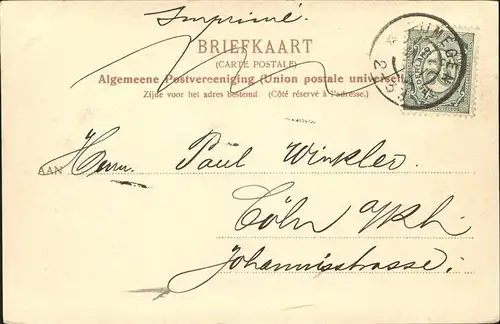 Imprimé.
BRIEFKAART
(CARTE POSTALE)
Algemeene Postvereeniging (Union postale universelle)
Zijde voor het adres bestemd. (Côté réservé à l'adresse.)
NIJMEGEN
NEDERLAND
AAN Herrn Paul Winkler.
Cöln a/Rh.
Johannisstrasse.